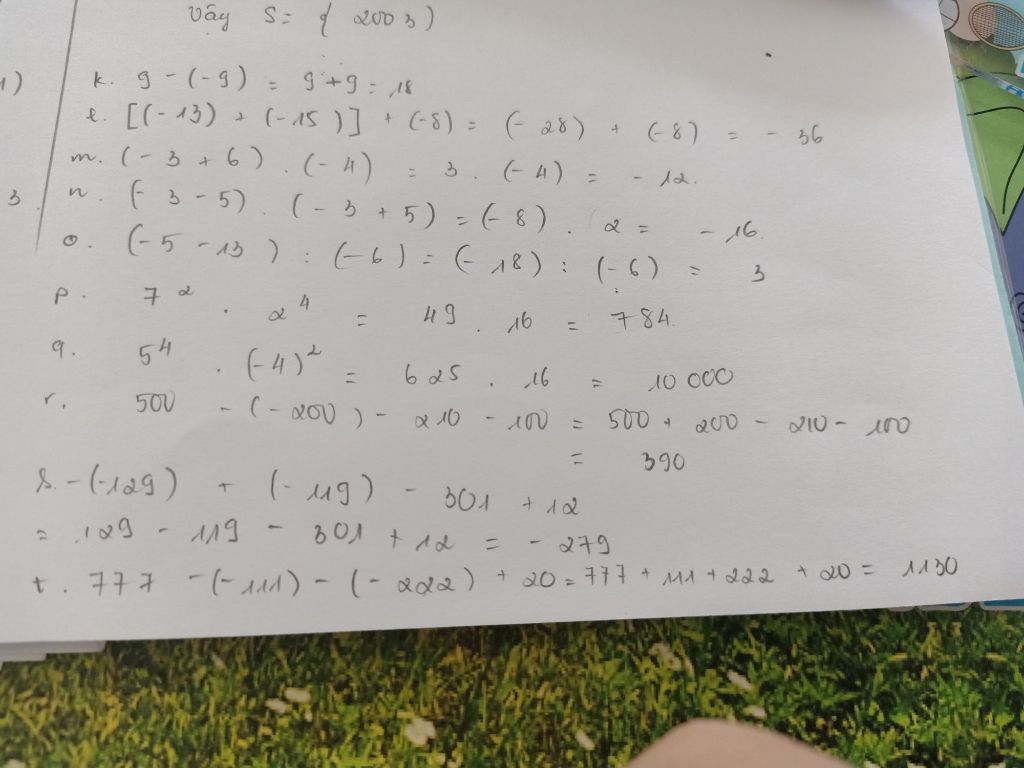 Vậy S = { 2003 }
1)
k. 9 - (-9) = 9 + 9 = 18
l. [(-13) + (-15)] + (-8) = (-28) + (-8) = -36
m. (-3 + 6) . (-4) = 3 . (-4) = -12.
3
n. (-3 - 5) . (-3 + 5) = (-8) . 2 = -16.
o. (-5 - 13) : (-6) = (-18) : (-6) = 3
p. 7² . 2⁴ = 49 . 16 = 784.
q. 5⁴ . (-4)² = 625 . 16 = 10 000
r. 500 - (-200) - 210 - 100 = 500 + 200 - 210 - 100
= 390
s. -(-129) + (-119) - 301 + 12
= 129 - 119 - 301 + 12 = -279
t. 777 - (-111) - (-222) + 20 = 777 + 111 + 222 + 20 = 1130